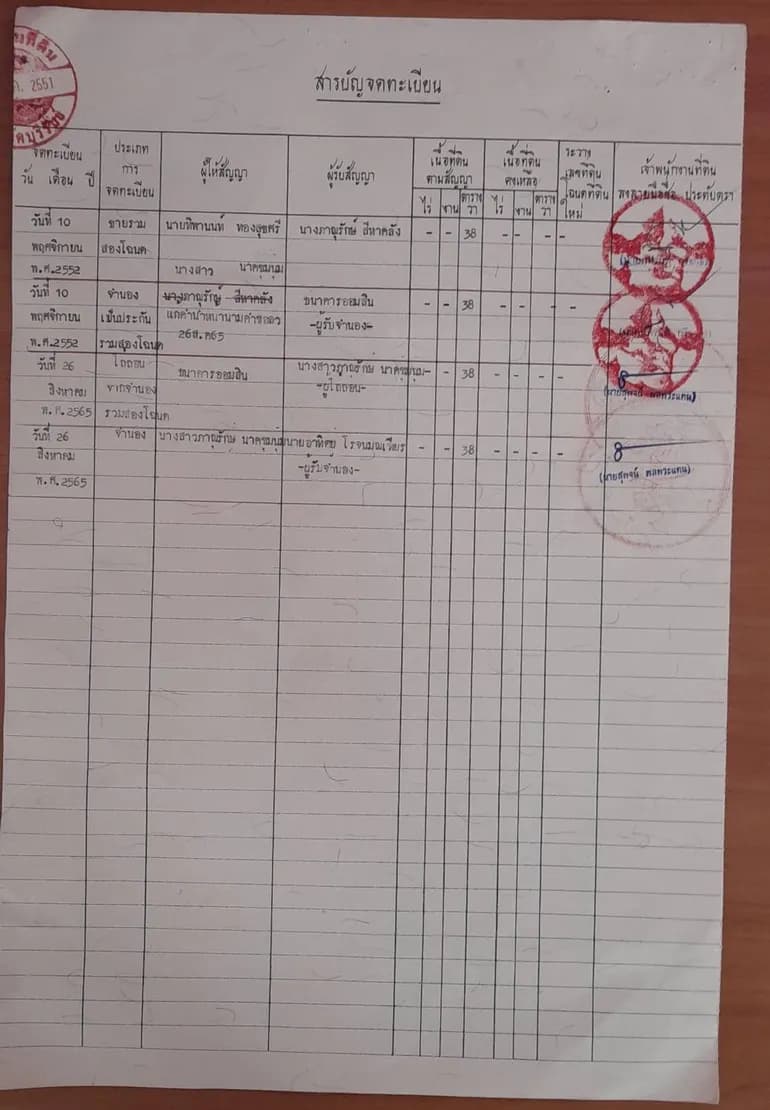 2551
สารบัญจดทะเบียน
จดทะเบียน
วัน เดือน ปี
ประเภท
การ
จดทะเบียน
ผู้ให้สัญญา
ผู้รับสัญญา
เนื้อที่ดิน
ตามสัญญา
ไร่ งาน ตาราง
วา
เนื้อที่ดิน
คงเหลือ
ไร่ งาน ตาราง
วา
ระวาง
เลขที่ดิน
โฉนดที่ดิน
ใหม่
เจ้าพนักงานที่ดิน
ลงลายมือชื่อ ประทับตรา
วันที่ 10 ขายรวม นายทิพานนท์ ทองสุขศรี นางภาณุรักษ์ สีหาคลัง - - 38 - - - -
พฤศจิกายน สองโฉนด
พ.ศ.2552 นางสาว นาคชุมนุม
วันที่ 10 จำนอง นางภาณุรักษ์ สีหาคลัง ธนาคารออมสิน - - 38 - - - -
พฤศจิกายน เป็นประกัน -ผู้รับจำนอง-
พ.ศ.2552 รวมสองโฉนด 26ส.ค65
วันที่ 26 ไถ่ถอน ธนาคารออมสิน นางสาวภาณุรักษ์ นาคชุมนุม - - 38 - - - -
สิงหาคม จากจำนอง -ผู้ไถ่ถอน-
พ.ศ.2565 รวมสองโฉนด
(นายสุพจน์ พลทวะแทน)
วันที่ 26 จำนอง นางสาวภาณุรักษ์ นาคชุมนุม นายอาทิตย์ - - 38 - - - -
สิงหาคม -ผู้รับจำนอง-
พ.ศ.2565
(นายสุพจน์ พลทวะแทน)